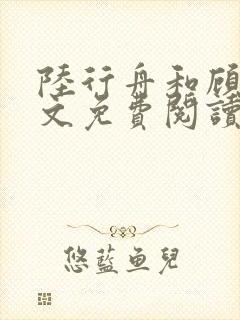 陸行舟和顧
文免費閱讀
悠藍魚兒